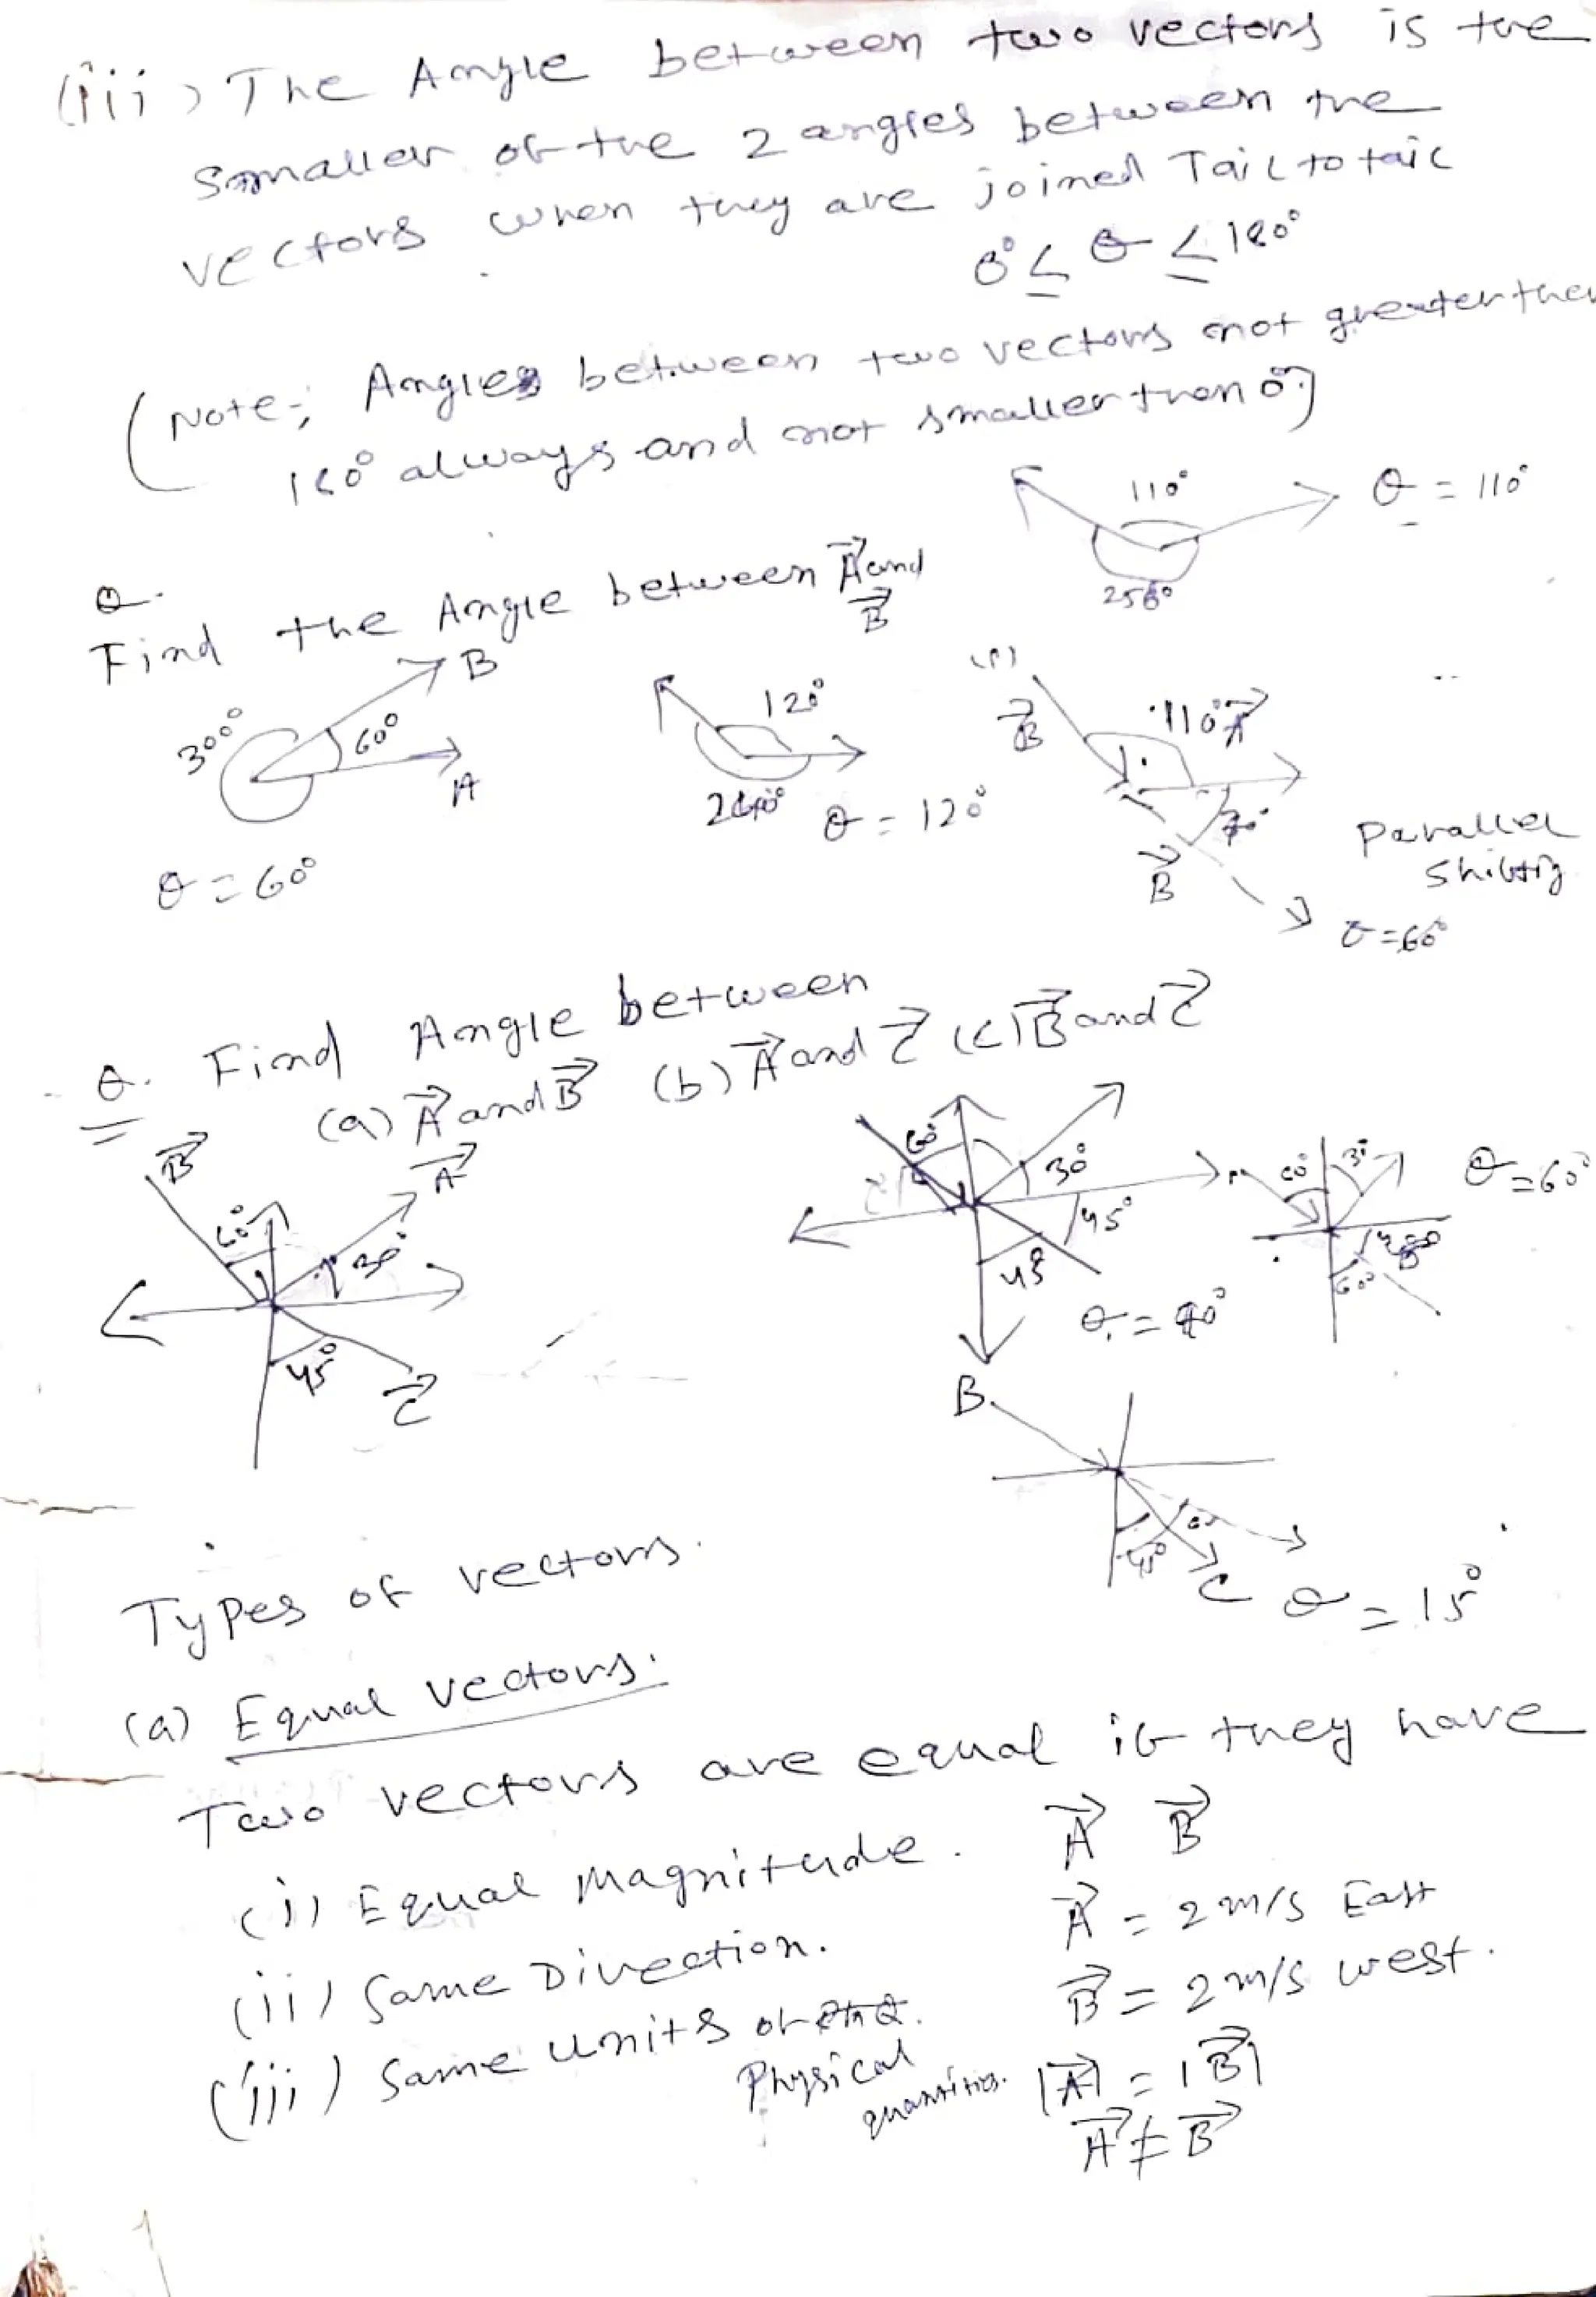 (iii) The Angle between two vectors is the
smaller of the 2 angles between the
vectors when they are joined Tail to tail
0° ≤ θ ≤ 180°
(Note; Angles between two vectors not greater than
180° always and not smaller than 0°)
110°
θ = 110°
250°
Q.
Find the Angle between A⃗ and
B⃗
B
300°
60°
A
θ = 60°
120°
240°
θ = 120°
B⃗
110°
A⃗
70°
B⃗
Parallel
shifting
θ = 60°
Q. Find Angle between
(a) A⃗ and B⃗ (b) A⃗ and C⃗ (c) B⃗ and C⃗
B⃗
A⃗
60°
30°
45°
C⃗
60°
30°
45°
45°
θ = 90°
60°
30
60°
θ = 60°
B
45°
C
θ = 15°
Types of vectors.
(a) Equal vectors.
Two vectors are equal if they have
(i) Equal Magnitude.
(ii) Same Direction.
(iii) Same units of
Physical
quantities.
A⃗ B⃗
A⃗ = 2 m/s East
B⃗ = 2 m/s west.
|A⃗| = |B⃗|
A⃗ ≠ B⃗